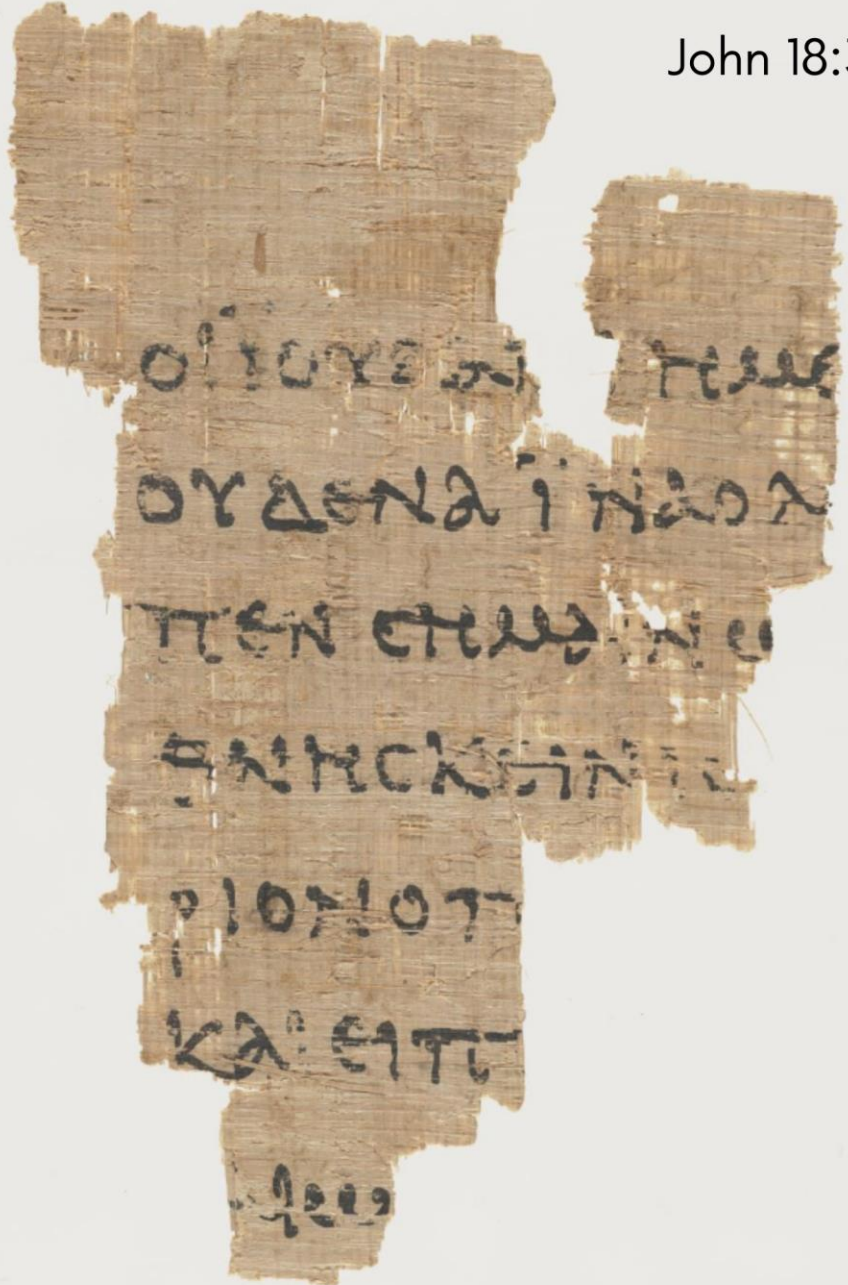 John 18:3
ΟΙ ΪΟΥΔΑΙ ΗΜΕ
ΟΥΔΕΝΑ ΪΝΑ Ο Λ
ΠΕΝ ΣΗΜΑΙΝΩ
ΘΝΗΣΚΕΙΝ
ΡΙΟΝ Ο Π
ΚΑΙ ΕΙΠ